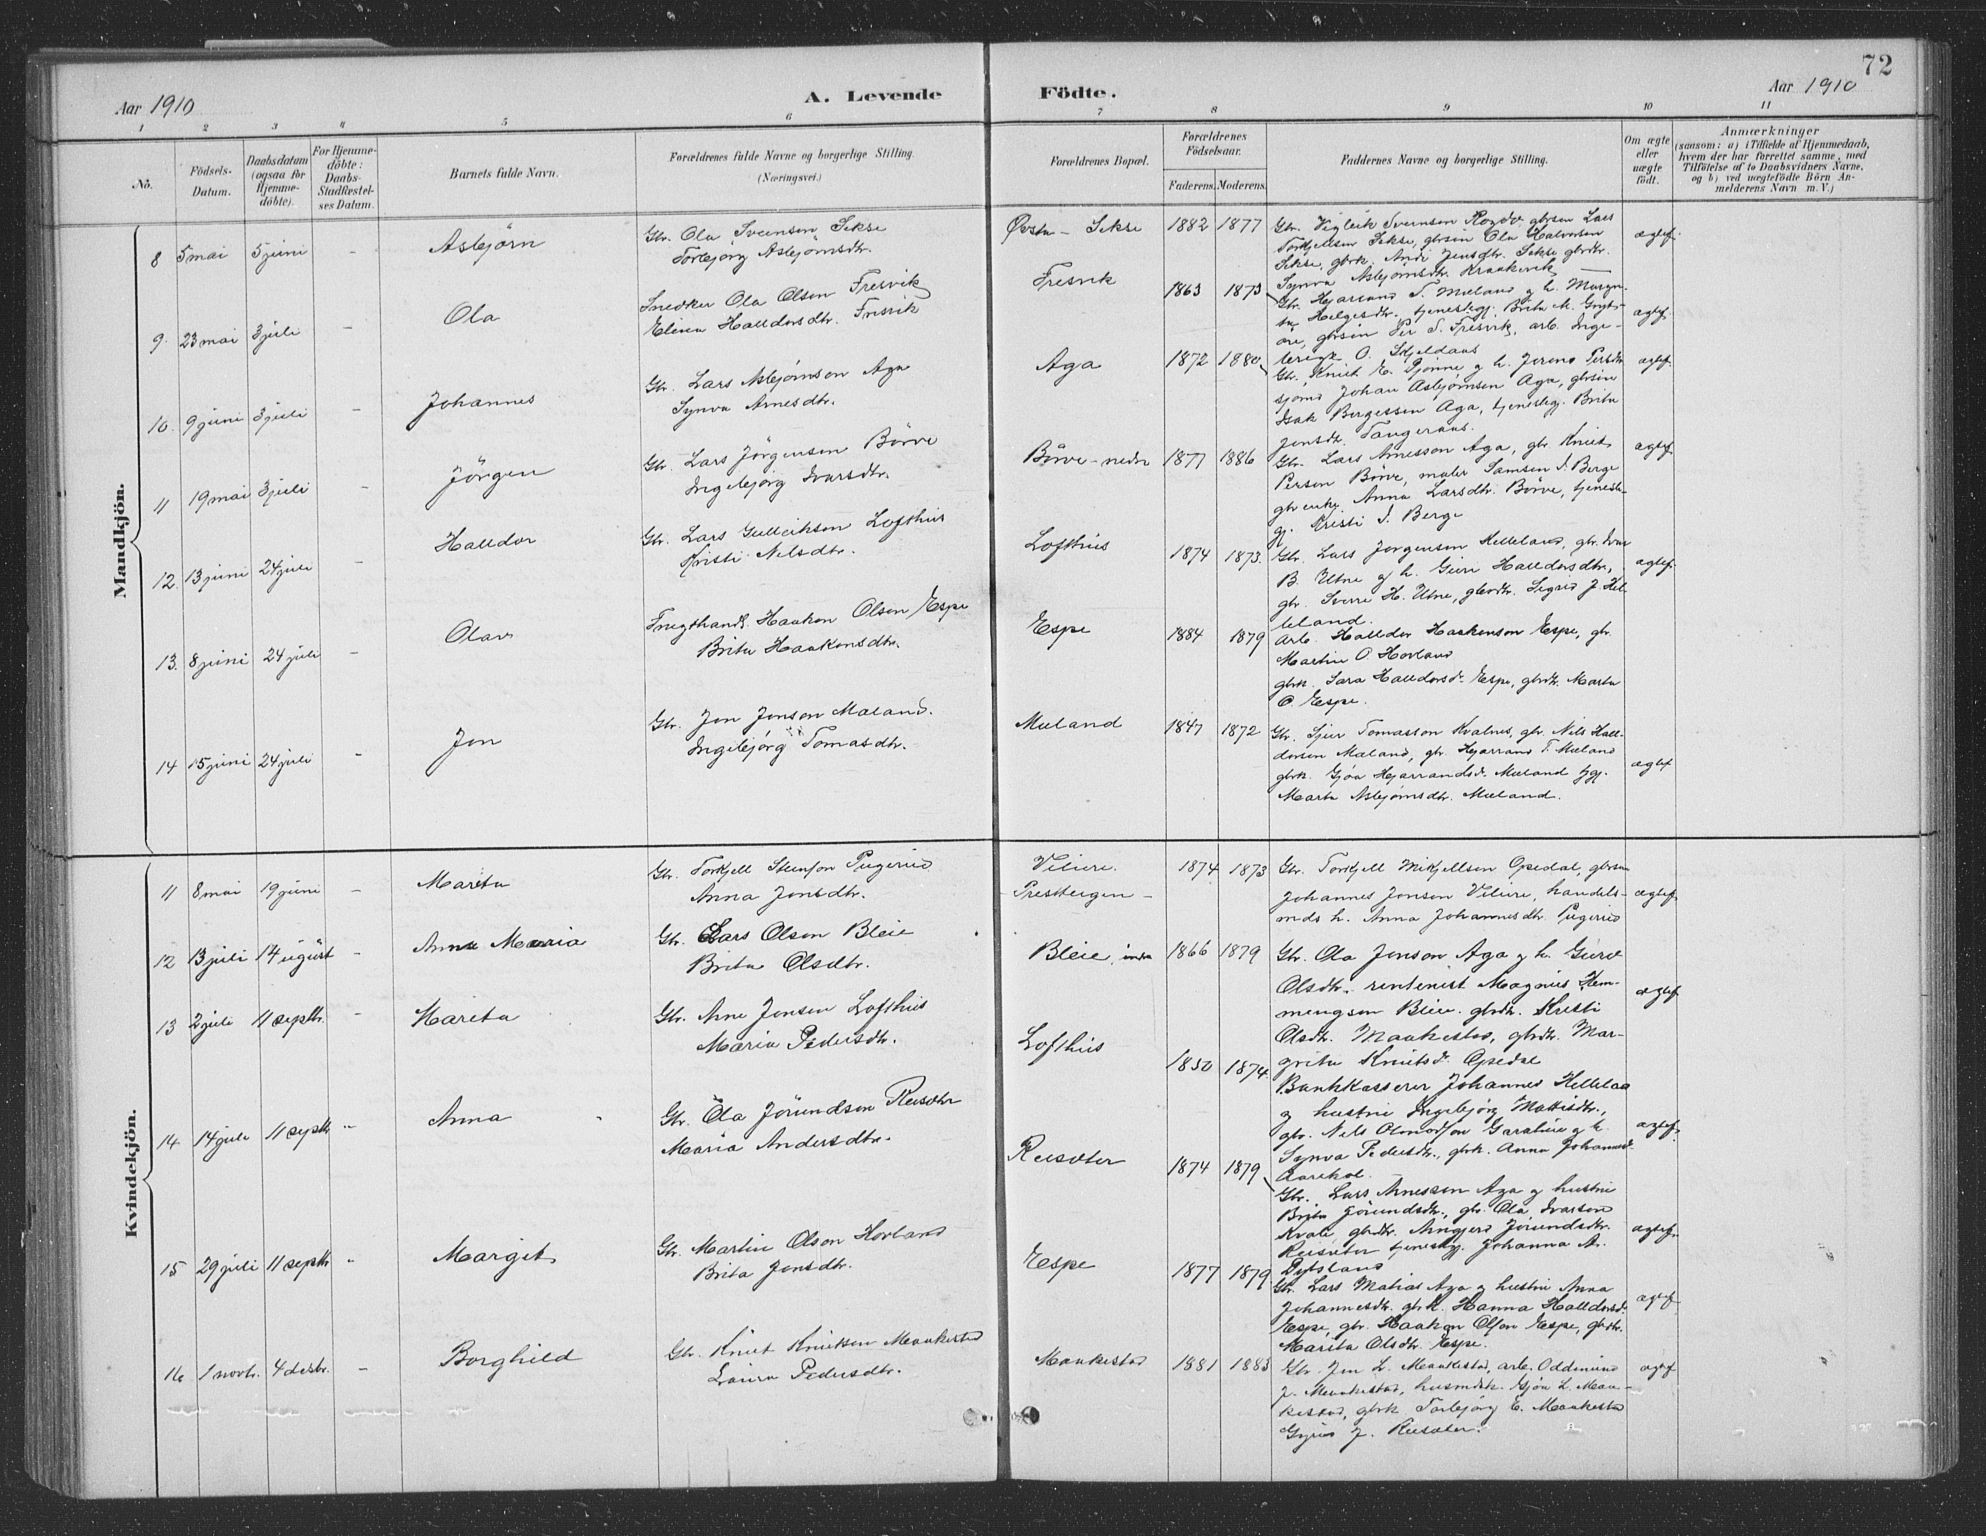 72
Aar 1910
A. Levende
Födte.
Aar 1910
1 2 3 4 5 6 7 8 9 10 11
No.
Födsels-
Datum.
Daabsdatum
(ogsaa for
Hjemme-
döbte).
For Hjemme-
döbte:
Daabs-
Stadfæstel-
ses Datum.
Barnets fulde Navn.
Forældrenes fulde Navne og borgerlige Stilling.
(Næringsvei.)
Forældrenes Bopæl.
Forældrenes
Födselsaar.
Faderens. Moderens.
Faddernes Navne og borgerlige Stilling.
Om ægte
eller
uægte
födt.
Anmærkninger
(saasom: a) i Tilfælde af Hjemmedaab,
hvem der har forrettet samme, med
Tilföielse af to Daabsvidners Navne,
og b) ved uægtefödte Börn An-
melderens Navn m. V.)
Mandkjön.
8 5 mai 5 juni - Asbjörn
Gbr. Ola Svensson Sekse
Torbjörg Asbjörnsdtr.
Øvstu - Sekse 1882 1877
Gbr. Vigleik Svenson Rogde gbrsön Lars
Torkjellson Sekse, gbrsön Ola Halvorsen
Sekse, gbrk. Andi Jensdtr. Sekse gbrdtr.
Synva Asbjörnsdtr. Kraakevik
ægtef.
9. 23 mai 3 juli - Ola
Snedker Ola Olson Fresvik
Elina Halldorsdtr. Fresvik
Fresvik 1863 1873
Gbr. Hjarrand T. Mæland og h. Margre-
ta Helgesdtr. tjenestegj. Brita M.
gbrsön Per T. Fresvik, arb. Inge-
O. Skjeldaas
ægtef.
10. 9 juni 3 juli - Johannes
Gbr. Lars Asbjörnson Aga
Synva Arnesdtr.
Aga 1872 1880
Gbr. Knut E. Djönne og h. Persdtr
Johan Asbjörnsen Aga, gbrsön
Isak Bergesen Aga, tjenestegj. Brita
Jonsdtr. Tangeraas.
ægtef.
11 19 mai 3 juli - Jörgen
Gbr. Lars Jörgenson Börve
Ingebjörg Ivarsdtr.
Börve - nedre 1877 1886
Gbr. Lars Arnesson Aga, gbr. Knut
Person Börve, maler Samson J. Berge
gbrenke Anna Larsdtr. Börve, tjeneste-
gj. Kristi J. Berge
ægtef.
12. 13 juni 24 juli - Halldor
Gbr. Lars Gulleikson Lofthus
Kristi Nilsdtr.
Lofthus 1874 1873.
Gbr. Lars Jörgenson Helleland, gbr. Ivar
B. Utne og h. Guri Halldorsdtr.,
gbr. Sverre H. Utne, gbrdtr. Sigrid J. Hel-
leland.
ægtef.
13. 8 juni 24 juli - Olav
Frugthandl. Haakon Olson Espe
Brita Haakonsdtr.
Espe 1884 1879
Arb. Halldor Haakonson Espe, gbr.
Martin O. Hovland
gbrk. Sara Halldorsd. Espe, gbrdtr. Marta
O. Espe.
14 15 juni 24 juli - Jon
Gbr. Jon Jonson Mæland.
Ingebjörg Tomasdtr.
Mæland 1847 1872
Gbr. Sjur Tomasson Kvalnes, gbr. Nils Hall-
dorson Mæland, gbr. Hjarrand T. Mæland
gbrk. Gjöa Hjarrandsd. Mæland tjgj.
Marta Asbjörnsdtr. Mæland.
ægtef
Kvindekjön.
11 8 mai 19 juni - Marita
Gbr. Torkjell Steinson Pugerud
Anna Jonsdtr.
Velure.
Prestteigen - 1874 1873
Gbr. Torkjell Mikjellson Opedal, gbrsön
Johannes Jonson Velure, handels-
mds h. Anna Johannesdtr. Pugerud
ægtef.
12 13 juli 14 august - Anna Maria
Gbr. Lars Olson Bleie
Brita Olsdtr.
Bleie, indre 1866 1879
Gbr. Ola Jonson Aga og h. Guro
Olsdtr. rentenist Magnus Hem-
mengson Bleie. gbrdtr. Kristi
Olsdtr. Maakestad, gbrdtr. Mar-
grita Knutsd. Opedal
ægtef.
13 2 juli 11 septbr. - Marita
Gbr. Arne Jonson Lofthus
Maria Pedersdtr.
Lofthus 1850 1874
Bankkasserer Johannes Helleland
og hustru Ingebjörg Mattisdtr.,
gbr. Nils og h.
Synva Pedersdtr., gbrk. Anna Johannesd.
Aarekol.
ægtef.
14 14 juli 11 septbr - Anna
Gbr. Ola Jörundson Reisæter
Maria Andersdtr.
Reisæter 1874 1879
Gbr. Lars Arnesson Aga og hustru
Brita Jörundsdtr., gbr. Ola Ivarson
Kvale, gbrdtr. Jörundsdtr.
Reisæter tjenestegj. Johanna A.
Dybsland
ægtef.
15 29 juli 11 septbr - Margit
Gbr. Martin Olson Hovland
Brita Jonsdtr.
Espe 1877 1879
Gbr. Lars Matias Aga og hustru Anna
Johannesdtr. gbrk. Hanna Halldorsd.
Espe, gbr. Haakon Olson Espe, gbrdtr.
Marita Olsdtr. Espe.
ægtef.
16 1 novbr. 4 desbr. - Borghild
Gbr. Knut Knutson Maakestad
Laura Pedersdtr.
Maakestad 1881 1883
Gbr. Jon L. Maakestad, arb. Oddmund
J. Maakestad, husmdsk. Gjöa L. Maa-
kestad, gbrk Torbjörg E. Maakestad
Gyrid J. Reisæter.
ægtef